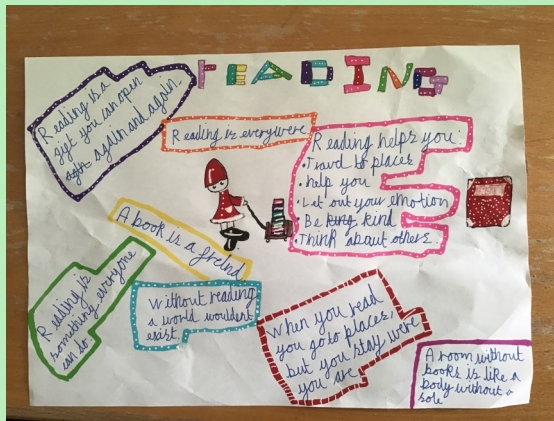 READING
Reading is a
gift you can open
again and again.
Reading is everywere
Reading helps you:
• Travel to places
• help you
• Let out your emotion
• Be king kind
• Think about others.
A book is a freind
Reading is
something everyone
can do.
Without reading
a world wouldn't
exist.
When you read
you go to places,
but you stay were
you are
A room without
books is like a
body without a
sole